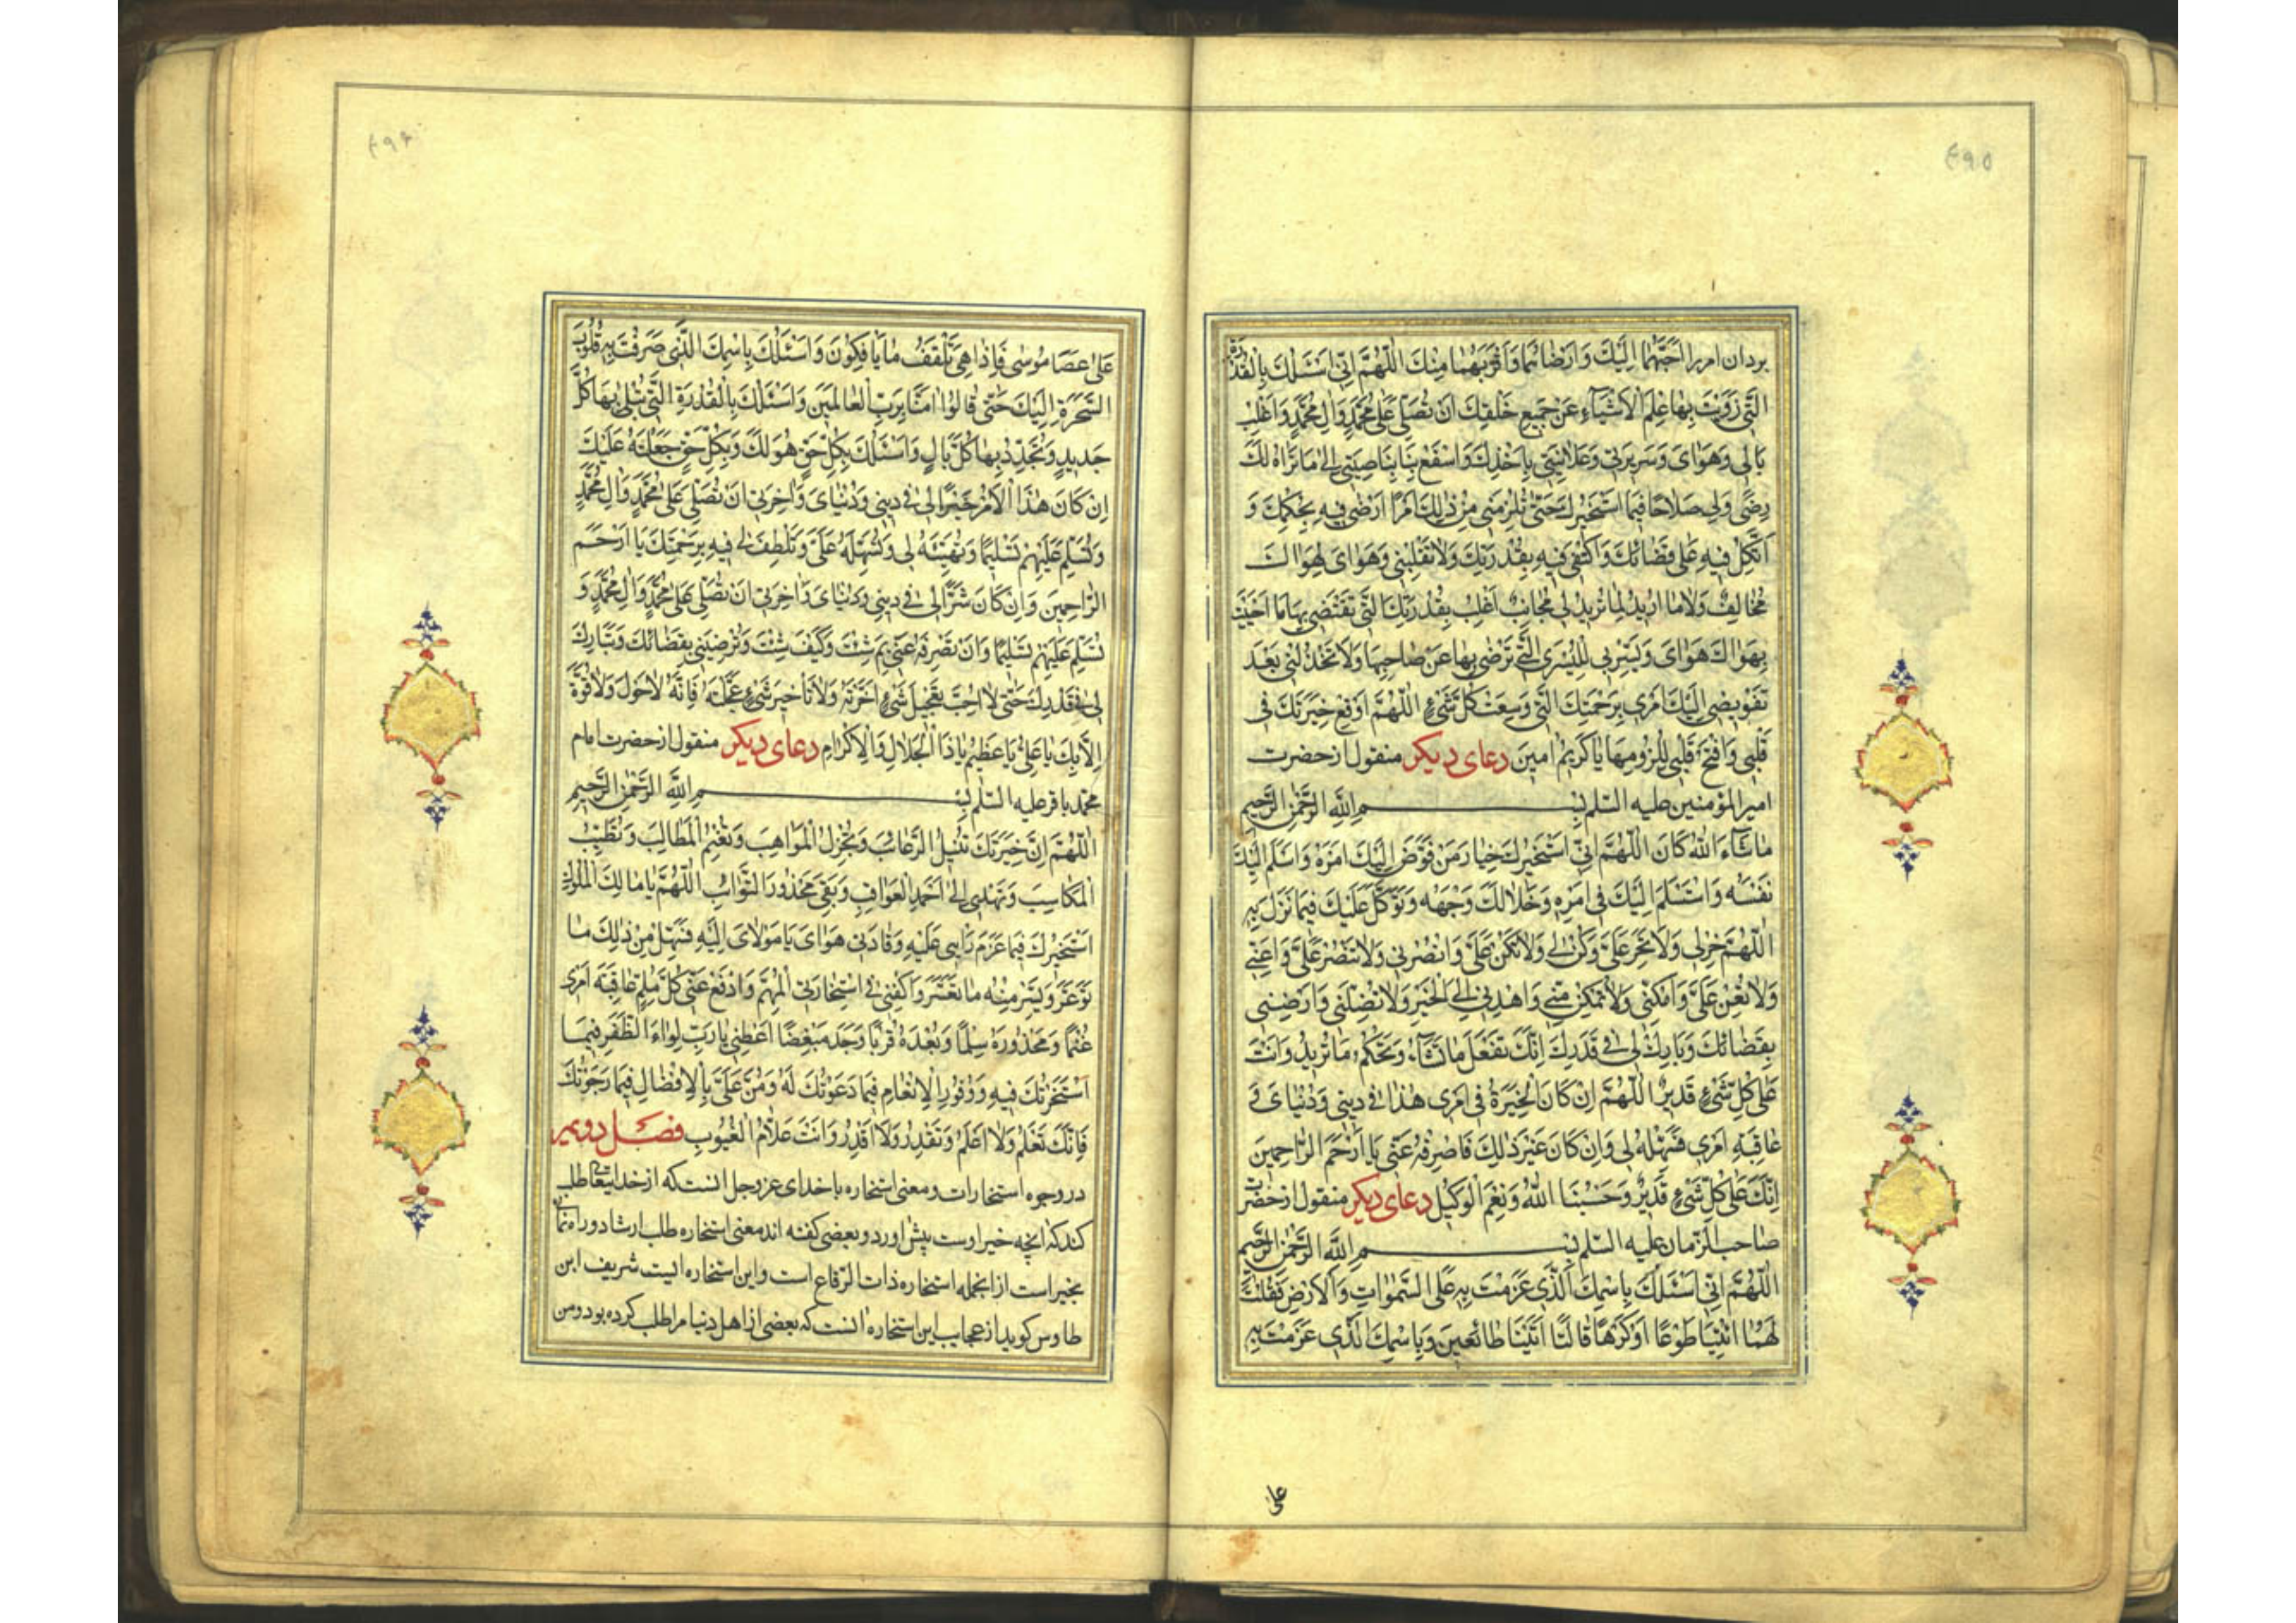 ۴۹۵
بردان امرا احبّهما الیک وارضاهما واقربهما منک اللّهمّ انّی اسئلک بالقدرة
الّتی زویت بها علم الاشیاء عن جمیع خلقک ان تصلّی علی محمّد وال محمّد واغلب
بالی وهوای وسریرتی وعلانیتی باخذک واسفع بناصیتی الی ما تراه لک
رضی ولی صلاحا فیما استخیرک حتّی تلزمنی من ذلک امرا ارضی فیه بحکمک و
اتّکل فیه علی قضائک واکتفی فیه بقدرتک ولا تقلبنی وهوای لهواک
مخالف ولا ما ارید لما ترید لی مجانب اغلب بقدرتک الّتی تقضی بها ما احببت
بهواک هوای ویسّرنی للیسری الّتی ترضی بها عن صاحبها ولا تخذلنی بعد
تفویضی الیک امری برحمتک الّتی وسعت کلّ شیء اللّهمّ اوقع خیرتک فی
قلبی وافتح قلبی للزومها یا کریم امین دعای دیکر منقول از حضرت
امیر المؤمنین علیه السّلم بسم الله الرّحمن الرّحیم
ما شاء الله کان اللّهمّ انّی استخیرک خیار من فوّض الیک امره واسلم الیک
نفسه واستسلم الیک فی امره وخلا لک وجهه وتوکّل علیک فیما نزل به
اللّهمّ خر لی ولا تخر علیّ وکن لی ولا تکن علیّ وانصرنی ولا تنصر علیّ واعنّی
ولا تعن علیّ وامکنّی ولا تمکن منّی واهدنی الی الخیر ولا تضلّنی وارضنی
بقضائک وبارک لی فی قدرک انّک تفعل ما تشاء وتحکم ما ترید وانت
علی کلّ شیء قدیر اللّهمّ ان کان الخیرة فی امری هذا فی دینی ودنیای فی
عاقبة امری فسهّله لی وان کان غیر ذلک فاصرفه عنّی یا ارحم الرّاحمین
انّک علی کلّ شیء قدیر وحسبنا الله ونعم الوکیل دعای دیکر منقول از حضرت
صاحب الزّمان علیه السّلم بسم الله الرّحمن الرّحیم
اللّهمّ انّی اسئلک باسمک الّذی عزمت به علی السّموات والارض فقلت
لهما ائتیا طوعا او کرها قالتا اتینا طائعین وباسمک الّذی عزمت به
علی
۴۹۶
علی عصا موسی فاذا هی تلقف ما یافکون واسئلک باسمک الّذی صرفت به قلوب
السّحرة الیک حتّی قالوا امنّا بربّ العالمین واسئلک بالقدرة الّتی تبلی بها کلّ
جدید وتجدّد بها کلّ بال واسئلک بکلّ حقّ هو لک وبکلّ حقّ جعلته علیک
ان کان هذا الامر خیرا لی فی دینی ودنیای واخرتی ان تصلّی علی محمّد وال محمّد
وتسلّم علیهم تسلیما وتهیّئه لی وتسهّله علیّ وتلطف لی فیه برحمتک یا ارحم
الرّاحمین وان کان شرّا لی فی دینی ودنیای واخرتی ان تصلّی علی محمّد وال محمّد و
تسلّم علیهم تسلیما وان تصرفه عنّی بم شئت وکیف شئت وترضینی بقضائک وتبارک
لی فی قدرک حتّی لا احبّ تعجیل شیء اخّرته ولا تاخیر شیء عجّلته فانّه لا حول ولا قوّة
الّا بک یا علیّ یا عظیم یا ذا الجلال والاکرام دعای دیکر منقول از حضرت امام
محمّد باقر علیه السّلم بسم الله الرّحمن الرّحیم
اللّهمّ انّ خیرتک تنیل الرّغائب وتجزل المواهب وتغنم المطالب وتطیّب
المکاسب وتهدی الی احمد العواقب وتقی محذور النّوائب اللّهمّ یا مالک الملوک
استخیرک فیما عزم رایی علیه وقادنی هوای یا مولای الیه فسهّل من ذلک ما
توعّر ویسّر منه ما تعسّر واکفنی فی استخارتی المهمّ وادفع عنّی کلّ ملمّ عاقبة امری
غنما ومحذوره سلما وبعده قربا وجده مبغضا اعطنی یا ربّ لواء الظّفر فیما
استخرتک فیه ووفور الانعام فیما دعوتک له ومنّ علیّ بالافضال فیما رجوتک
فانّک تعلم ولا اعلم وتقدر ولا اقدر وانت علّام الغیوب فصل دویم
در وجوه استخارات ومعنی استخاره با خدای عزّوجل انست که از خدایتعالی طلب
کند که انچه خیر اوست پیش اورد وبعضی کفته اند معنی استخاره طلب ارشاد و راه نمائی
بخیر است از انجمله استخاره ذات الرّقاع است واین استخاره ایست شریف ابن
طاوس کوید از عجایب این استخاره انست که بعضی از اهل دنیا مرا طلب کرده بود ومن